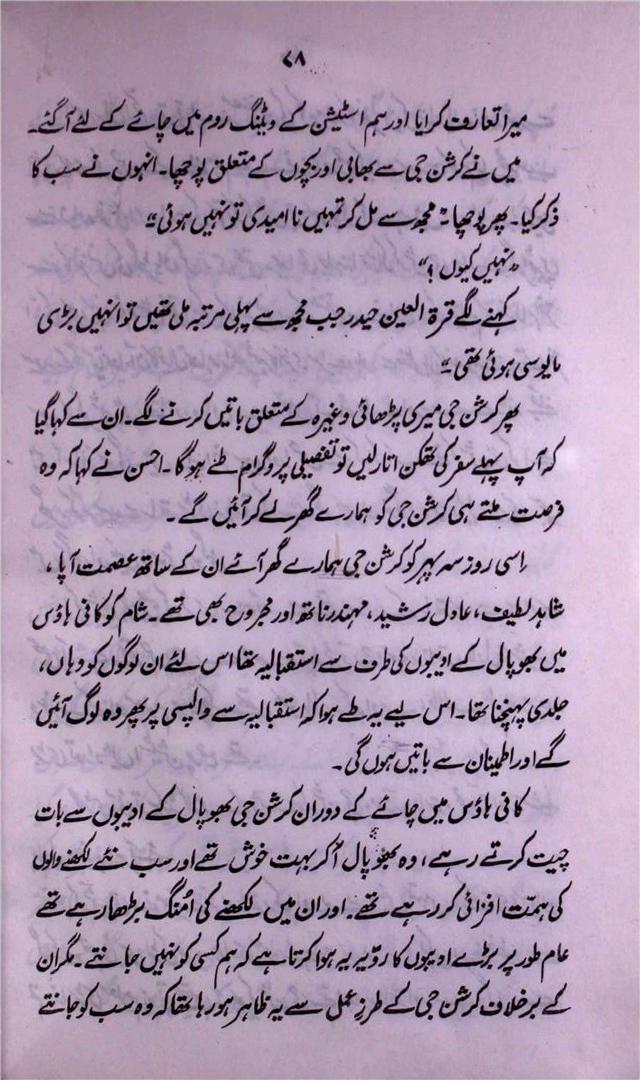 ۷۸
میرا تعارف کرایا اور ہم اسٹیشن کے ویٹنگ روم میں چائے کے لئے آگئے۔
میں نے کرشن جی سے بھابی اور بچوں کے متعلق پوچھا۔ انہوں نے سب کا
ذکر کیا۔ پھر پوچھا۔" مجھ سے مل کر تمہیں نا امیدی تو نہیں ہوئی"
"نہیں کیوں؟"
کہنے لگے قرۃ العین حیدر جب مجھ سے پہلی مرتبہ ملی تھیں تو انہیں بڑی
مایوسی ہوئی تھی"
پھر کرشن جی میری پڑھائی وغیرہ کے متعلق باتیں کرنے لگے۔ ان سے کہا گیا
کہ آپ پہلے سفر کی تھکن اتارلیں تو تفصیلی پروگرام طے ہوگا۔ احسن نے کہا کہ وہ
فرصت ملتے ہی کرشن جی کو ہمارے گھر لے کر آئیں گے۔
اسی روز سہ پہر کو کرشن جی ہمارے گھر آئے ان کے ساتھ عصمت آپا،
شاہد لطیف، عادل رشید، مہندر ناتھ اور مجروح بھی تھے۔ شام کو کافی ہاؤس
میں بھوپال کے ادیبوں کی طرف سے استقبالیہ تھا اس لئے ان لوگوں کو وہاں،
جلدی پہنچنا تھا۔ اس لیے یہ طے ہوا کہ استقبالیہ سے واپسی پر پھر وہ لوگ آئیں
گے اور اطمینان سے باتیں ہوں گی۔
کافی ہاؤس میں چائے کے دوران کرشن جی بھوپال کے ادیبوں سے بات
چیت کرتے رہے، وہ بھوپال آکر بہت خوش تھے اور سب نئے لکھنے والوں
کی ہمّت افزائی کر رہے تھے۔ اور ان میں لکھنے کی اُمنگ بڑھا رہے تھے
عام طور پر بڑے ادیبوں کا رویّہ یہ ہوا کرتا ہے کہ ہم کسی کو نہیں جانتے۔ مگر ان
کے برخلاف کرشن جی کے طرزِ عمل سے یہ ظاہر ہو رہا تھا کہ وہ سب کو جانتے